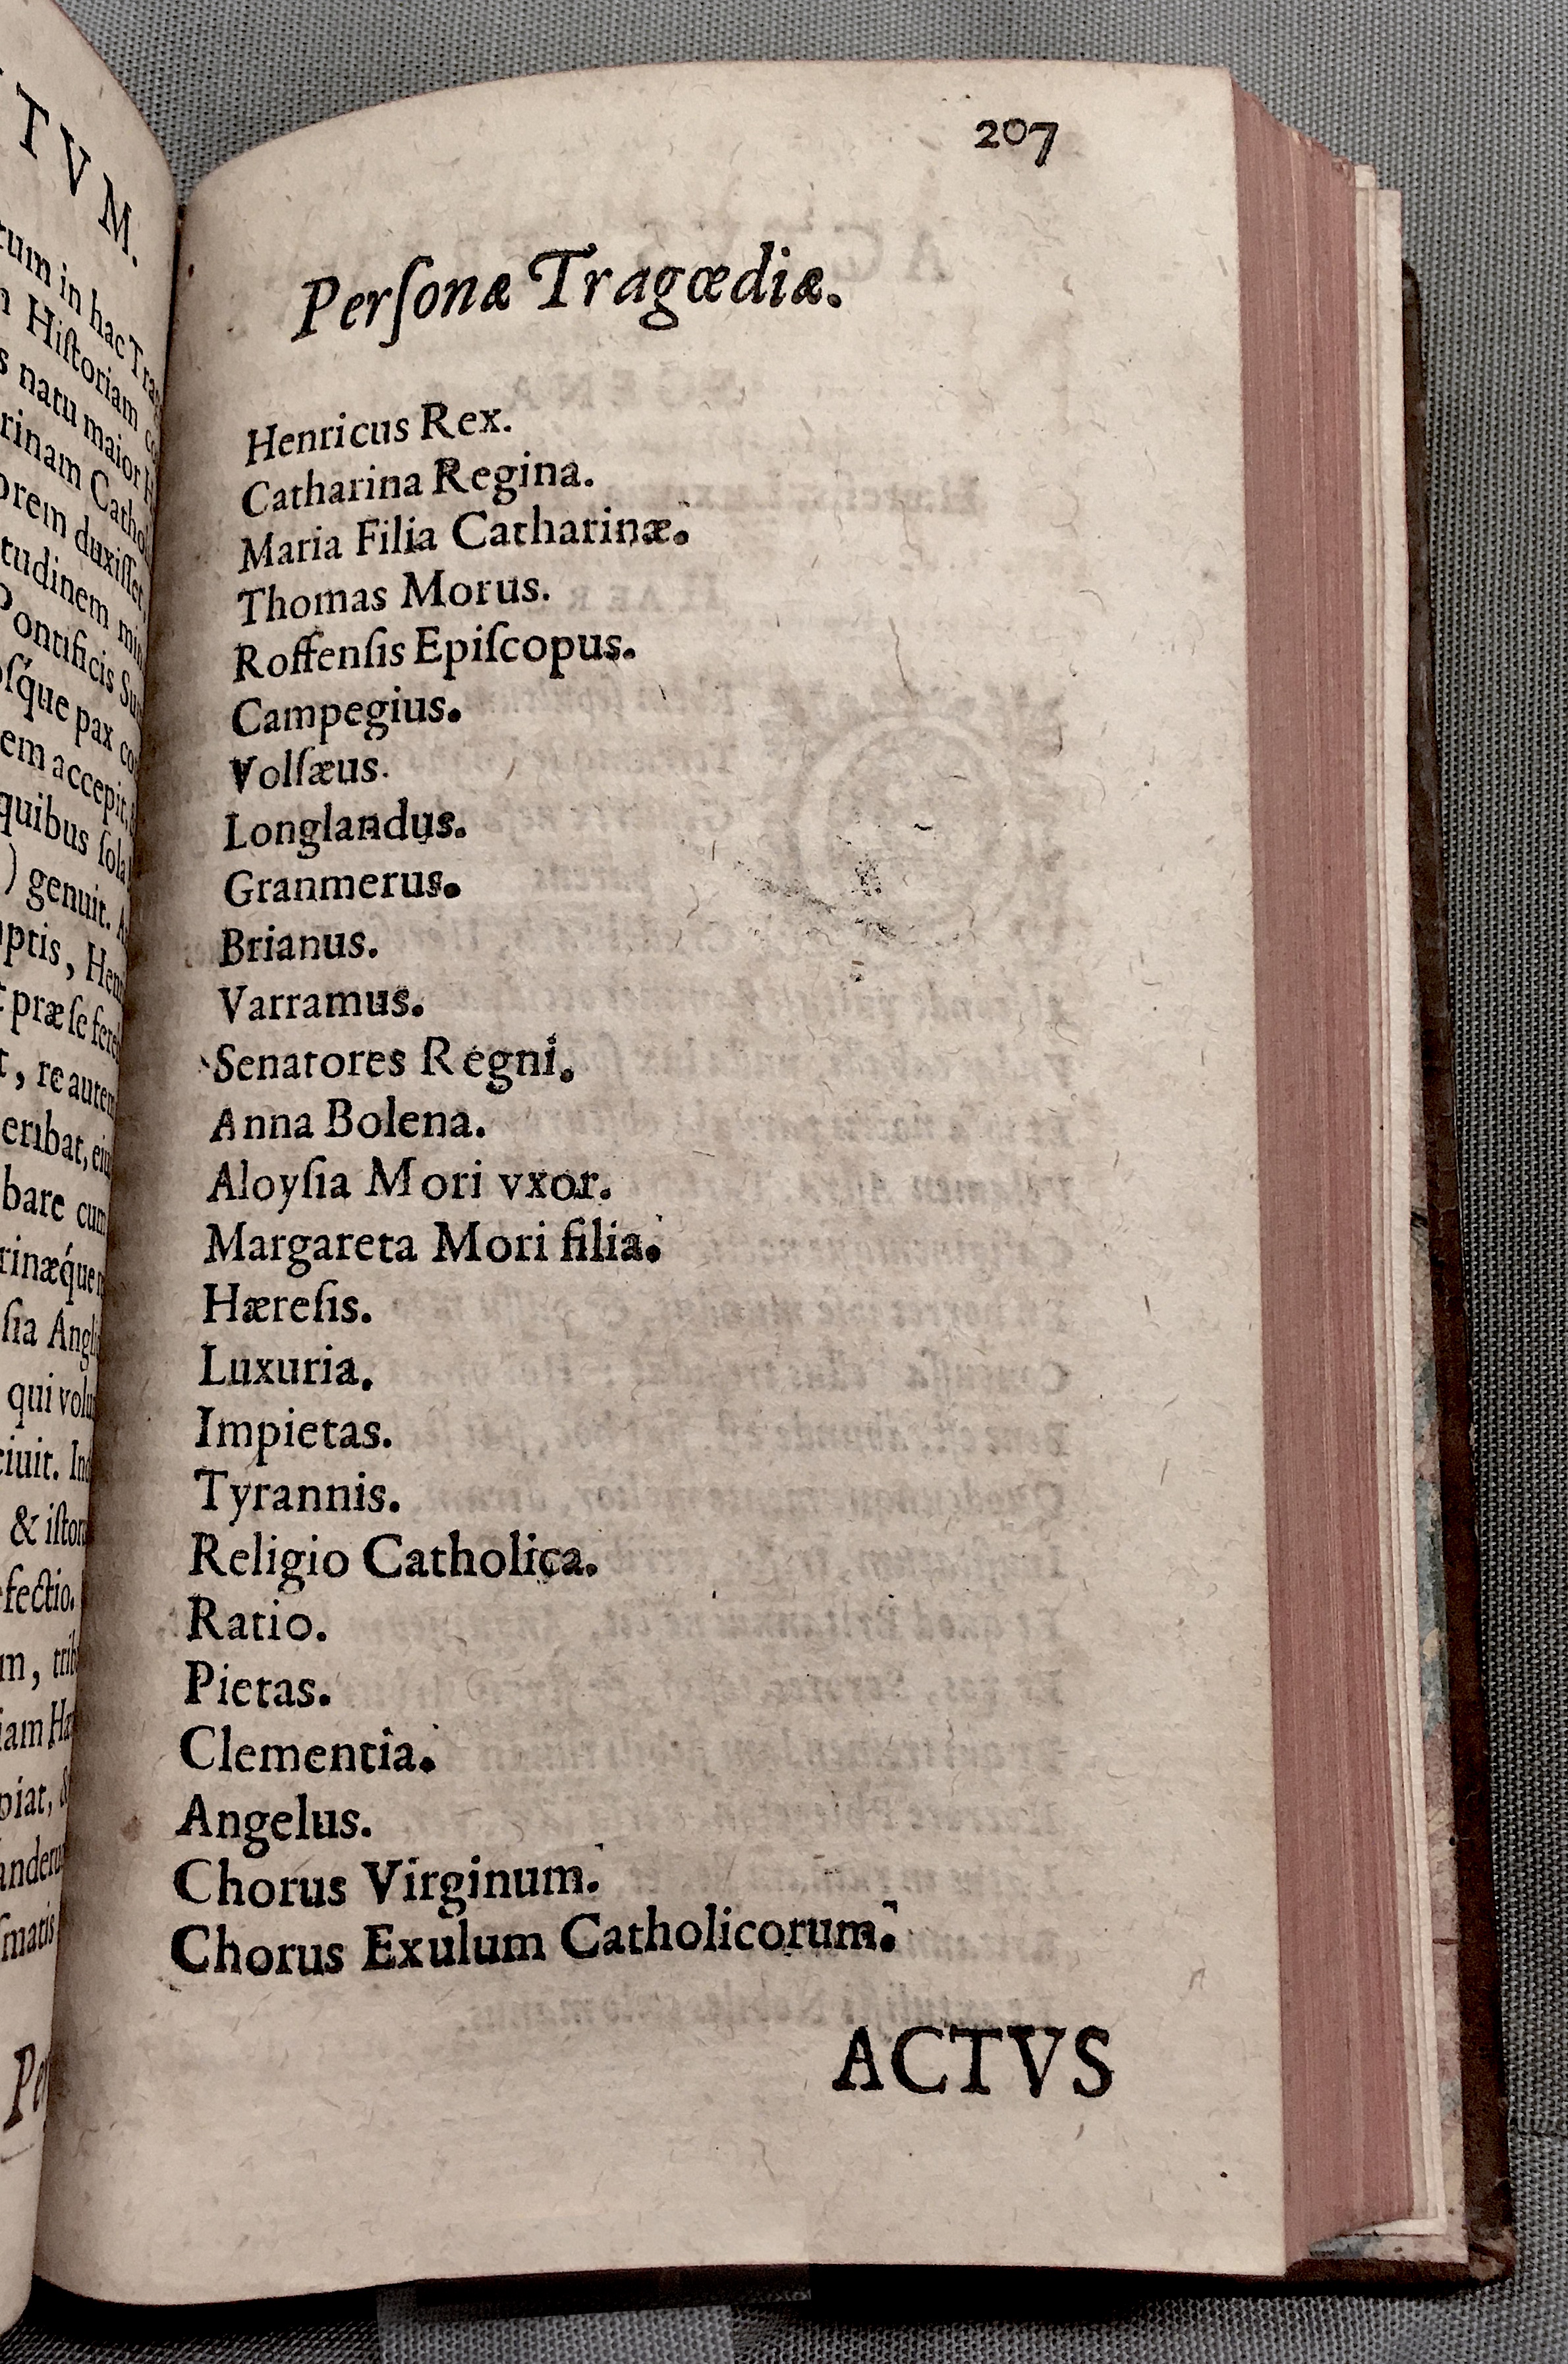 TVM.
tum in hac
Hiſtoriam
natu maior
rinam
orem duxiſſet,
tudinem
Pontificis
oſq́ue pax
em accepit,
quibus ſola
) genuit.
ptis,
præ ſe
, re autem
eribat,
bare cum
rinæq́ue
ſia
qui
ciuit.
&
fectio.
m,
iam
piat,
ſmatis
207
Perſonæ Tragœdiæ.
Henricus Rex.
Catharina Regina.
Maria Filia Catharinæ.
Thomas Morus.
Roffenſis Epiſcopus.
Campegius.
Volſæus.
Longlandus.
Granmerus.
Brianus.
Varramus.
Senatores Regni.
Anna Bolena.
Aloyſia Mori vxor.
Margareta Mori filia.
Hæreſis.
Luxuria.
Impietas.
Tyrannis.
Religio Catholica.
Ratio.
Pietas.
Clementia.
Angelus.
Chorus Virginum.
Chorus Exulum Catholicorum.
ACTVS